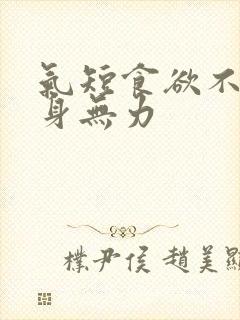 氣短食欲不
身無力
樸尹侯 趙美顯